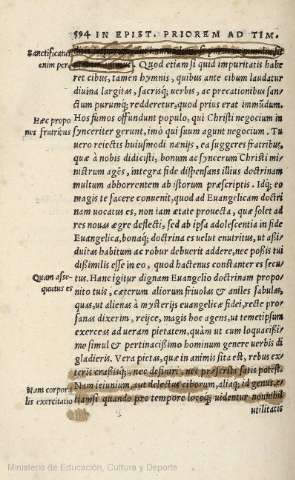 594 IN EPIST. PRIOREM AD TIM.
Sanctificatur
enim per
Quod etiam si quid impuritatis habe
ret cibus, tamen hymnis, quibus ante cibum laudatur
diuina largitas, sacrisq; uerbis, ac precationibus san-
ctum purumq; redderetur, quod prius erat immũdum.
Hæc propo
nes fratribus
Hos fumos offundunt populo, qui Christi negocium in
synceriter gerunt, imò qui suum agunt negocium. Tu
uero reiectis huiusmodi nænijs, ea suggeres fratribus,
quæ à nobis didicisti, bonum ac syncerum Christi mi-
nistrum agẽs, integra fide dispensans illius doctrinam
multum abhorrentem ab istorum præscriptis. Idq; eo
magis te facere conuenit, quod ad Euangelicam doctri
nam uocatus es, non iam ætate prouecta, quæ solet ad
res nouas ægre deflecti, sed ab ipsa adolescentia in fide
Euangelica, bonaq; doctrina es uelut enutritus, ut assi-
duitas habitum ac robur debuerit addere, nec possis tui
dissimilis esse in eo, quod hactenus constanter es secu-
Quam asse-
quutus es
tus. Hanc igitur dignam Euangelio doctrinam propo-
nito tuis, cæterum aliorum friuolas & aniles fabulas,
quas, ut alienas à mysterijs euangelicæ fidei, recte pro-
fanas dixerim, reijce, magis hoc agens, ut temetipsum
exerceas ad ueram pietatem, quàm ut cum loquacissi-
mo simul & pertinacissimo hominum genere uerbis di
gladieris. Vera pietas, quæ in animis sita est, rebus ex-
teris
Nam corpora
lis exercitatio
Num ieiunium, aut delectus ciborum, aliaq; id genus,
quando pro tempore locoq; uidentur nonnihil
utilitatis
Ministerio de Educación, Cultura y Deporte